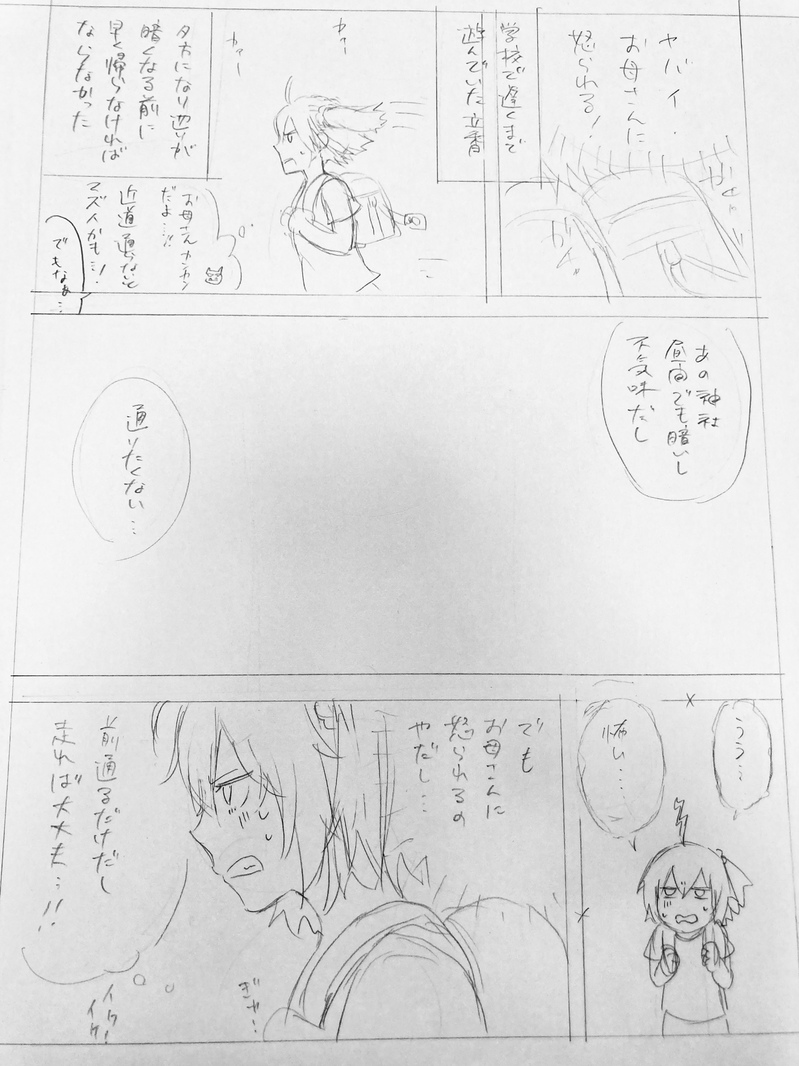 ヤバイ・
お母さんに
怒られる!
ガキ
ガキ
学校で遅くまで
遊んでいた立香
カァー
カァー
夕方になり辺りが
暗くなる前に
早く帰らなければ
ならなかった
お母さんカンカン
だよ…!!
近道通らないと
マズイかも…!
でもなぁ…
あの神社
昼間でも暗いし
不気味だし
通りたくない…
うう…
怖い……
でも
お母さんに
怒られるの
やだし…
前通るだけだし
走れば大丈夫…!!
ぎゅ…
イケ!
イケ